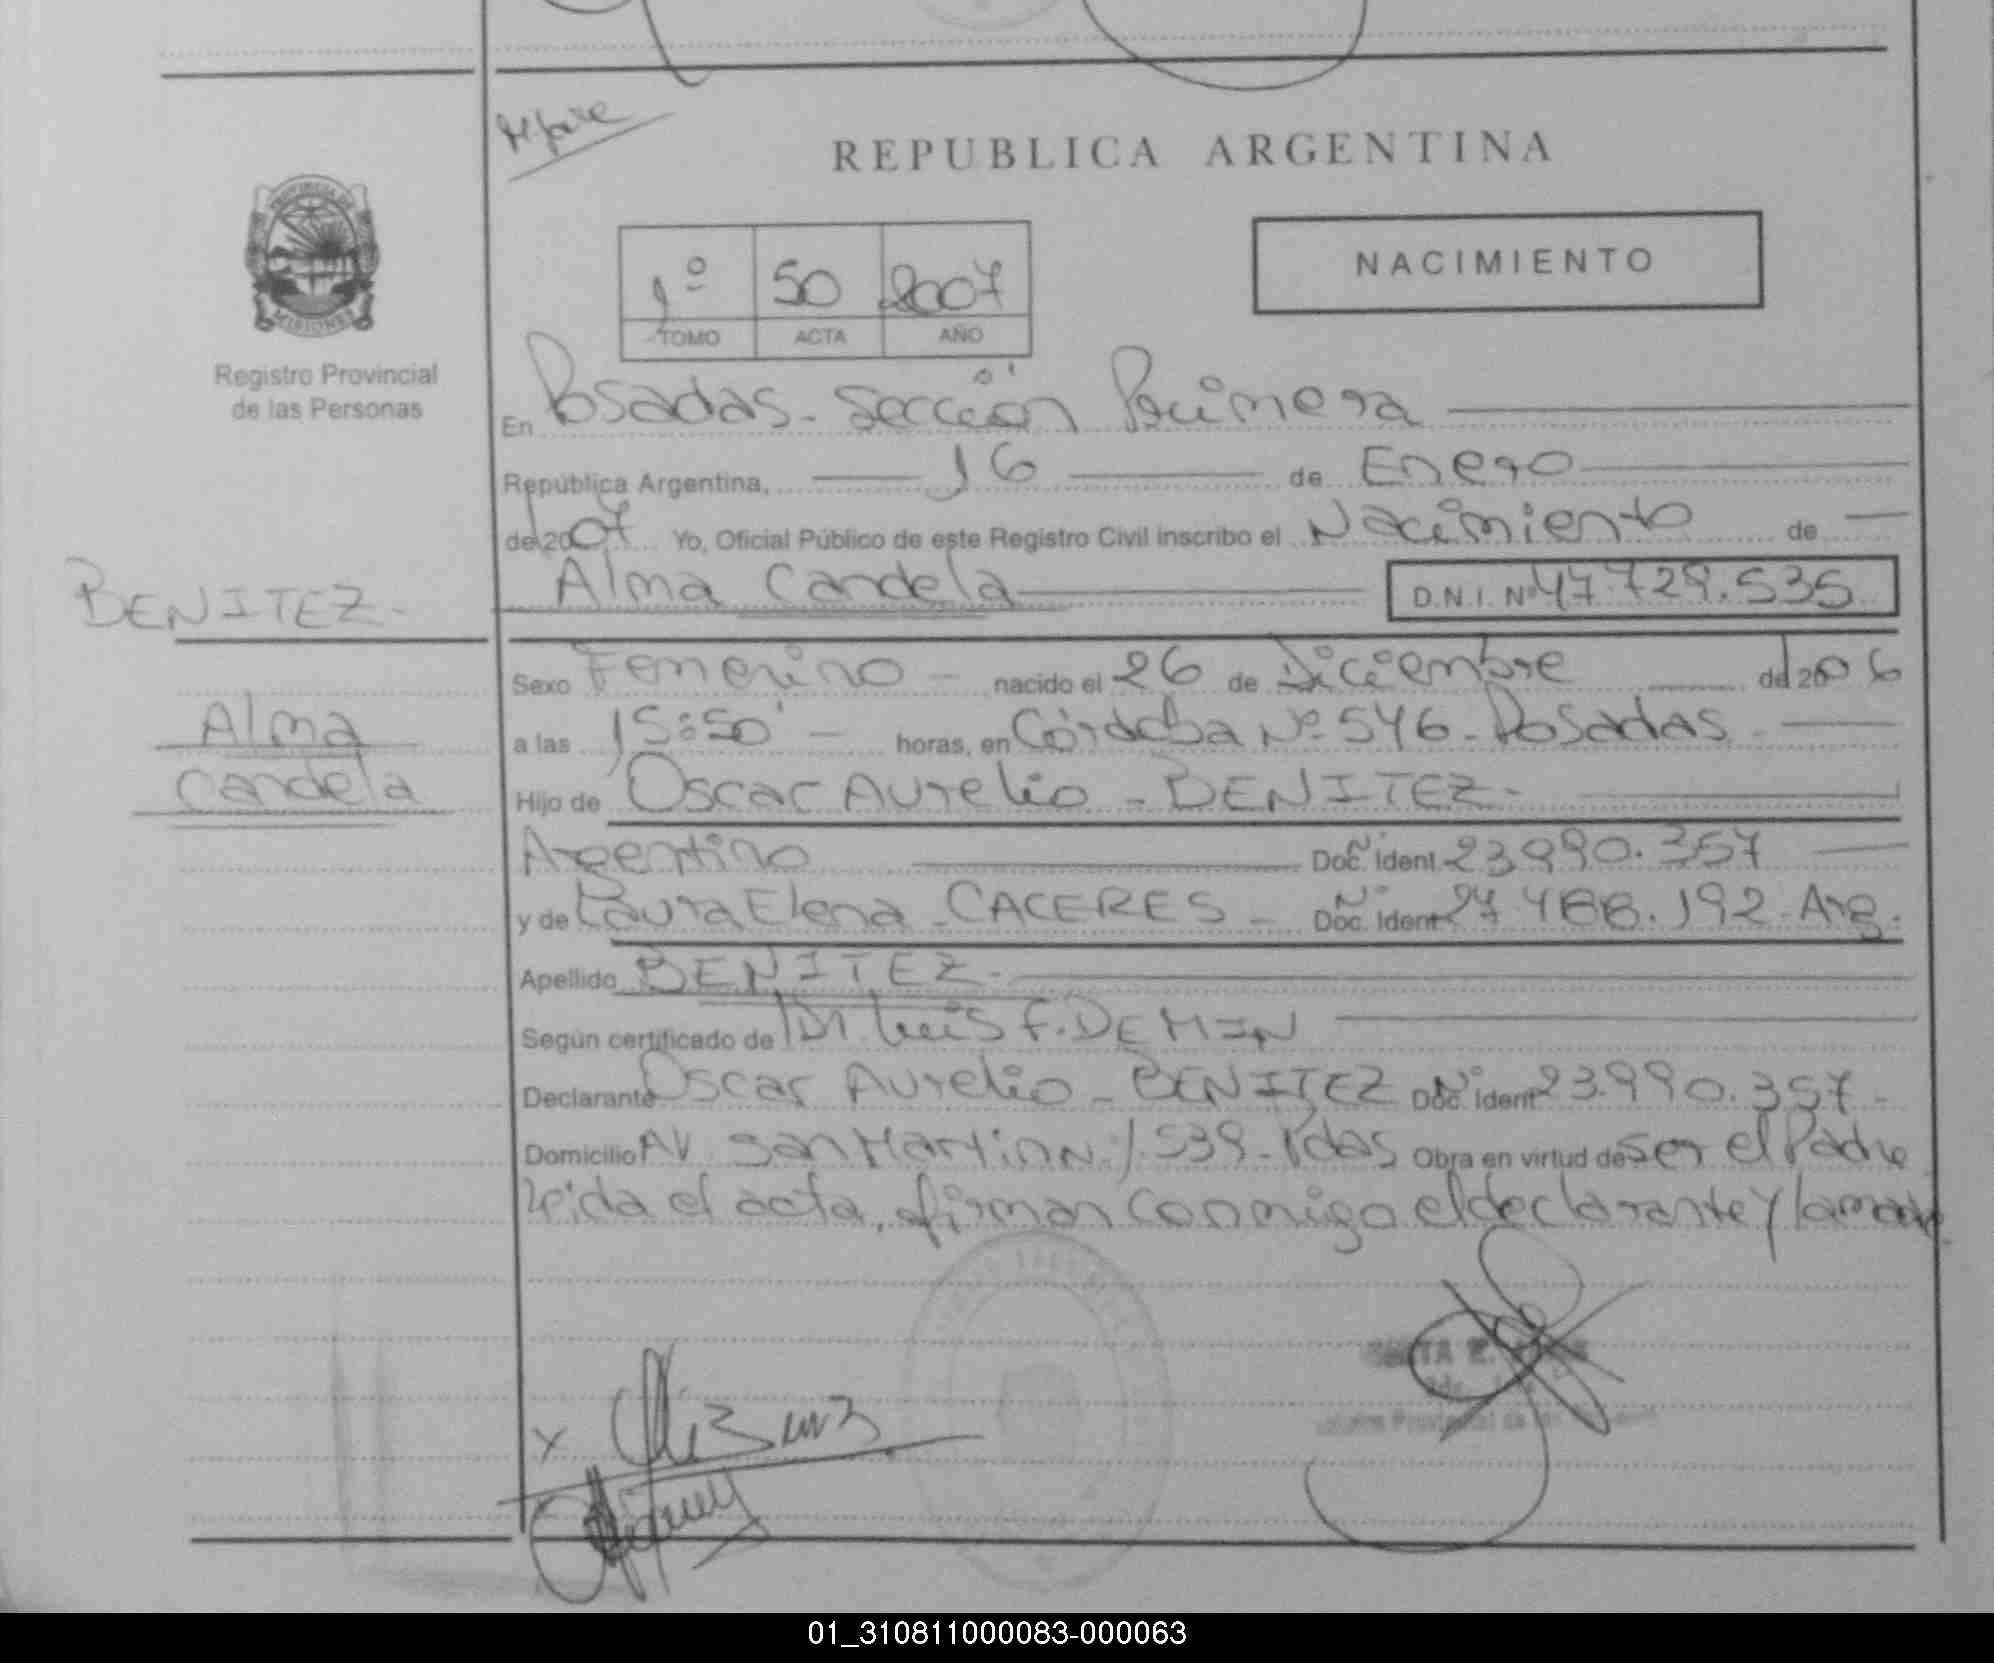 REPUBLICA ARGENTINA
PROVINCIA DE
MISIONES
Registro Provincial
de las Personas
1º 50 2007
TOMO ACTA AÑO
NACIMIENTO
En Posadas - Sección Primera
República Argentina, 16 de Enero
de 2007 Yo, Oficial Público de este Registro Civil inscribo el Nacimiento de
BENITEZ - Alma Candela D.N.I. Nº 47.729.535
Alma
Candela
Sexo Femenino - nacido el 26 de Diciembre de 2006
a las 15:50' - horas, en Córdoba Nº 546 - Posadas -
Hijo de Oscar Aurelio - BENITEZ -
Argentino Doc. Ident. Nº 23.990.357
y de Laura Elena - CACERES - Doc. Ident. Nº 27.488.192 - Arg.
Apellido BENITEZ -
Según certificado de Dr. Luis F. DEMIN
Declarante Oscar Aurelio - BENITEZ Doc. Ident. Nº 23.990.357 -
Domicilio AV. San Martin N: 1539 - Pdas Obra en virtud de ser el Padre
Leida el acta, firman conmigo el declarante y la madre
01_310811000083-000063